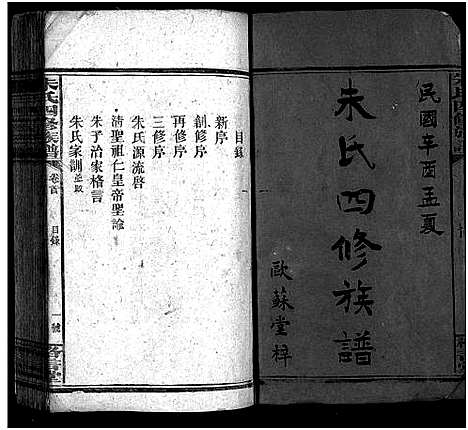 民國辛酉孟夏
朱氏四修族譜
歐蘇堂梓
目錄
新序
創修序
再修序
三修序
朱氏源流啓
清聖祖仁皇帝聖諭
朱子治家格言
朱氏家訓
朱氏四修族譜
卷首
目錄
一號